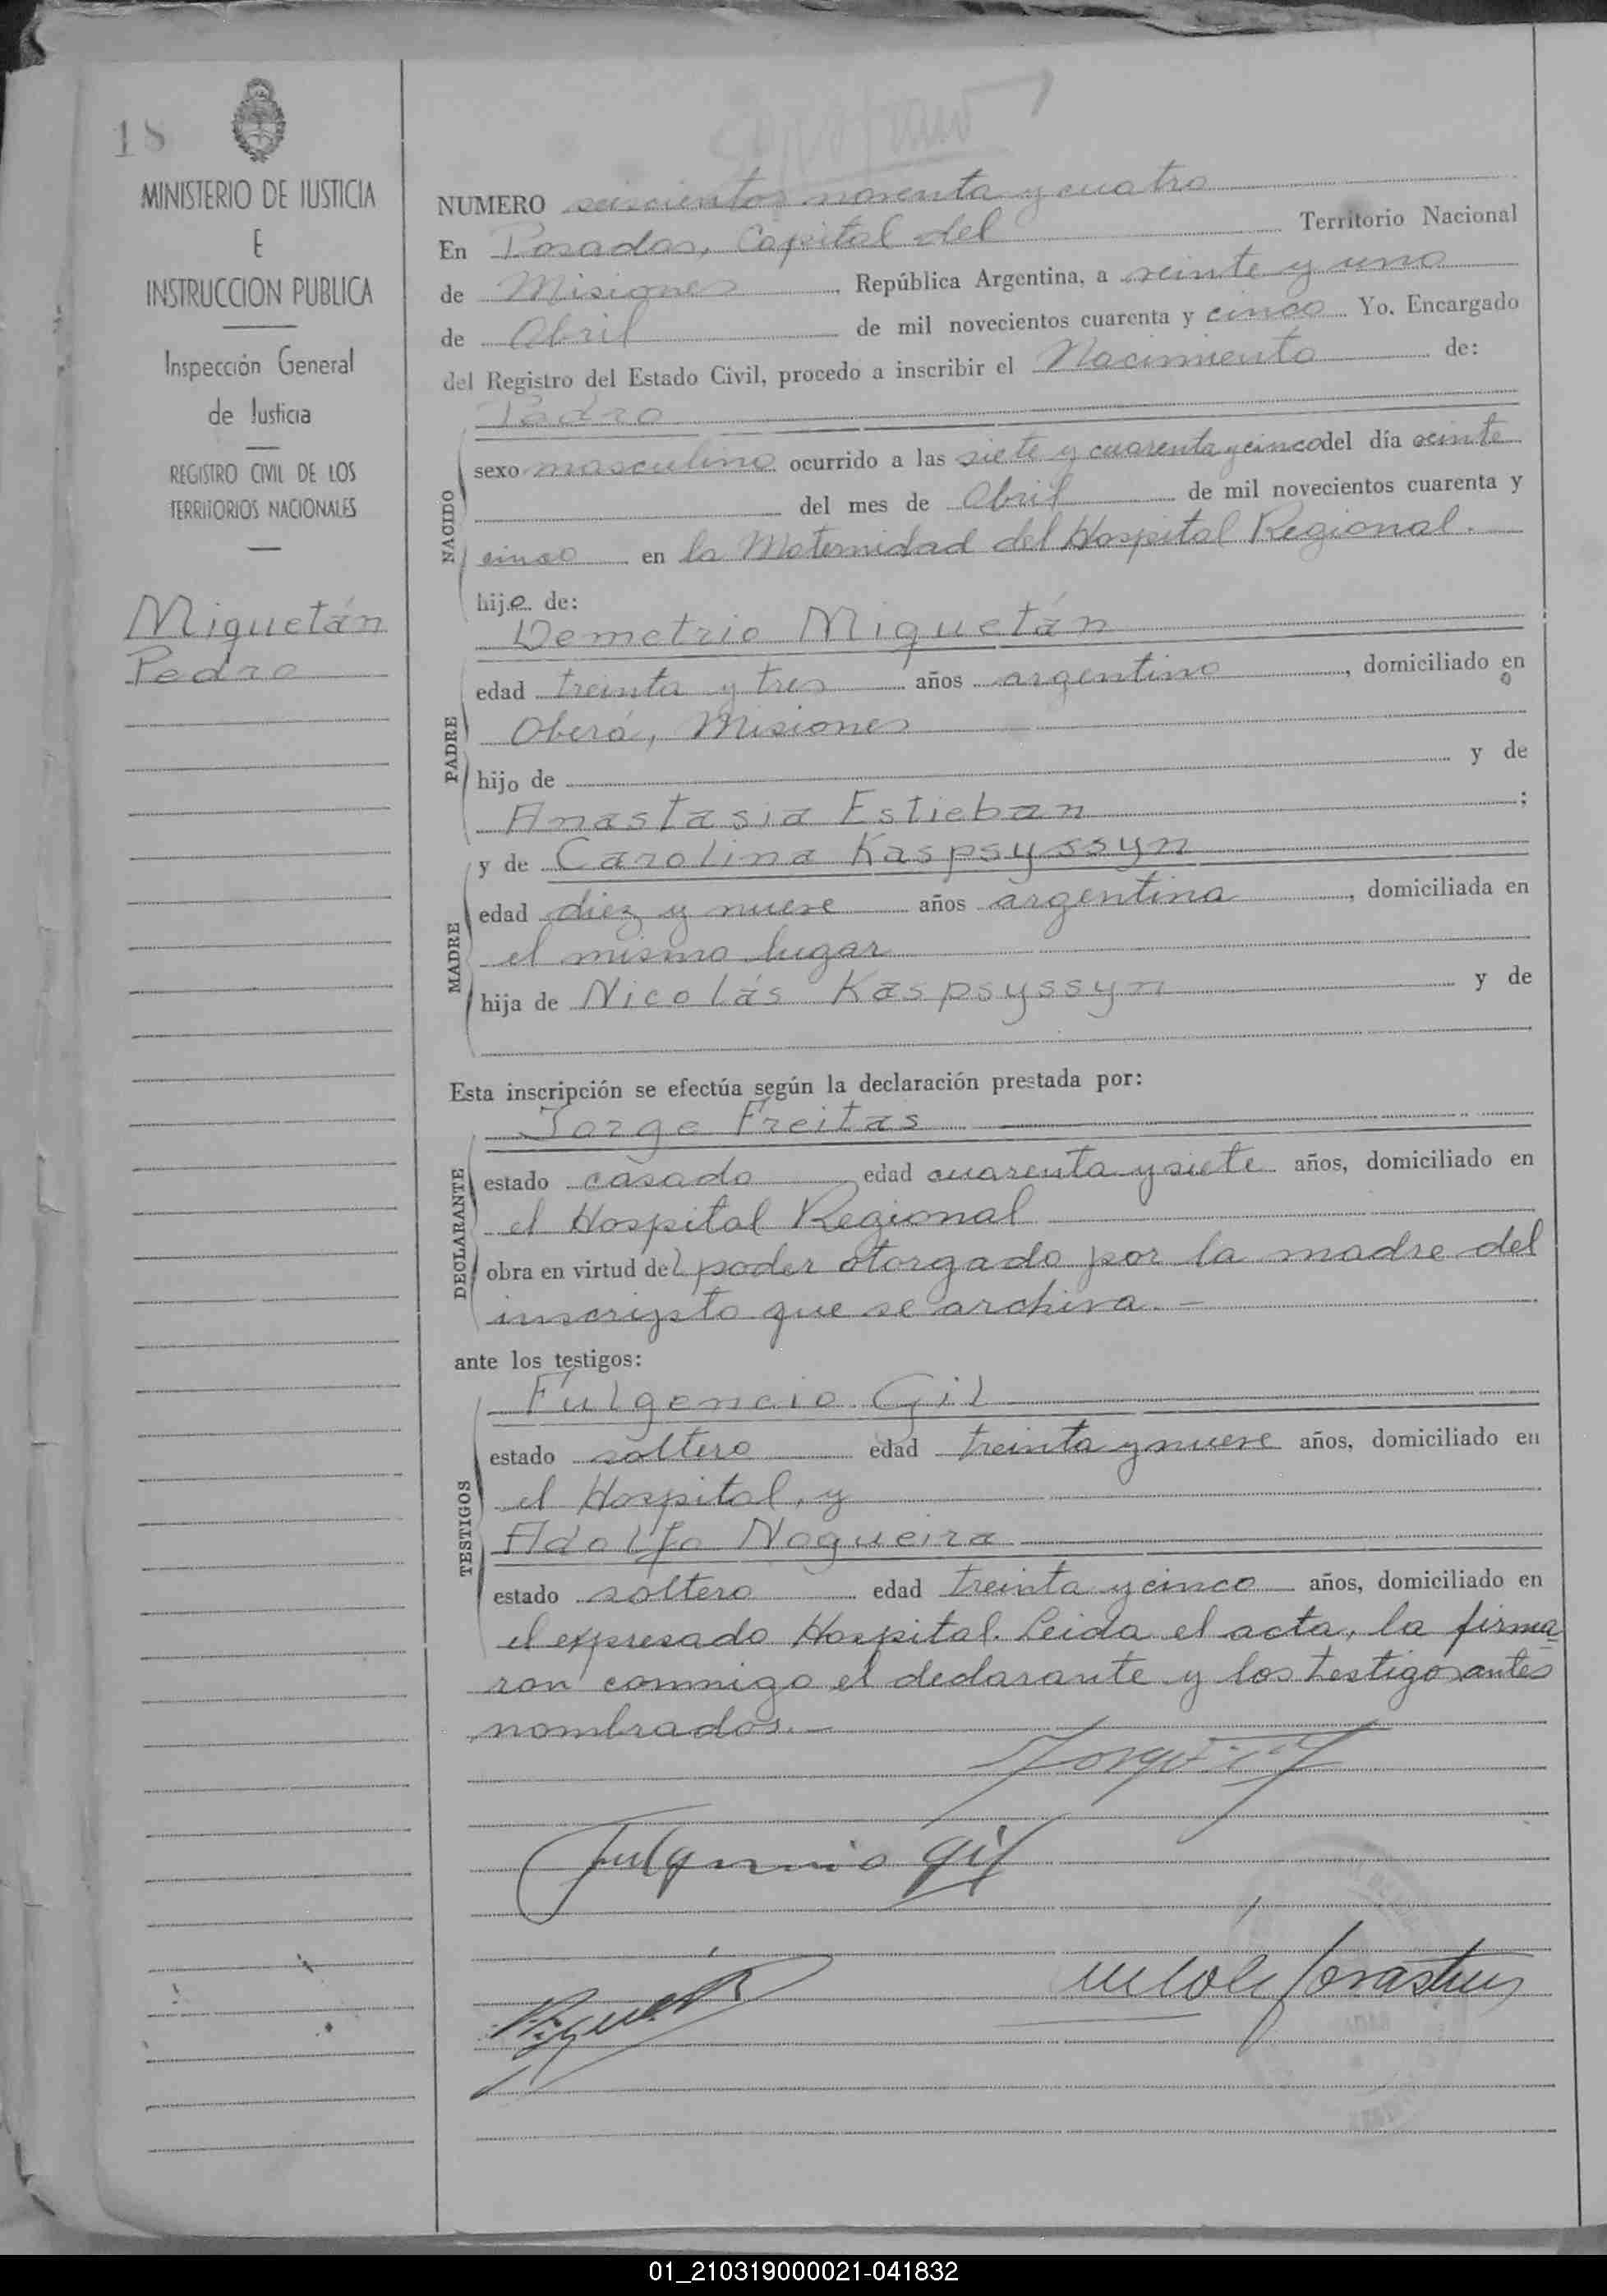 18
MINISTERIO DE JUSTICIA
E
INSTRUCCION PUBLICA
Inspección General
de Justicia
REGISTRO CIVIL DE LOS
TERRITORIOS NACIONALES
Miquetán
Pedro
NUMERO seiscientos noventa y cuatro
En Posadas, Capital del Territorio Nacional
de Misiones, República Argentina, a veinte y uno
de Abril de mil novecientos cuarenta y cinco Yo, Encargado
del Registro del Estado Civil, procedo a inscribir el Nacimiento de:
NACIDO
Pedro
sexo masculino ocurrido a las siete y cuarenta y cinco del día veinte
del mes de Abril de mil novecientos cuarenta y
cinco en la Maternidad del Hospital Regional.
hijo de:
PADRE
Demetrio Miquetán
edad treinta y tres años argentino, domiciliado en
Oberá, Misiones
hijo de y de
Anastasia Estieban;
MADRE
y de Carolina Kaspsyssyn
edad diez y nueve años argentina, domiciliada en
el mismo lugar
hija de Nicolás Kaspsyssyn y de
Esta inscripción se efectúa según la declaración prestada por:
DECLARANTE
Jorge Freitas
estado casado edad cuarenta y siete años, domiciliado en
el Hospital Regional
obra en virtud del poder otorgado por la madre del
inscripto que se archiva.-
ante los testigos:
TESTIGOS
Fulgencio Gil
estado soltero edad treinta y nueve años, domiciliado en
el Hospital, y
Adolfo Nogueira
estado soltero edad treinta y cinco años, domiciliado en
el expresado Hospital. Leida el acta, la firma
ron conmigo el declarante y los testigos antes
nombrados.-
Fulgencio Gil
01_210319000021-041832